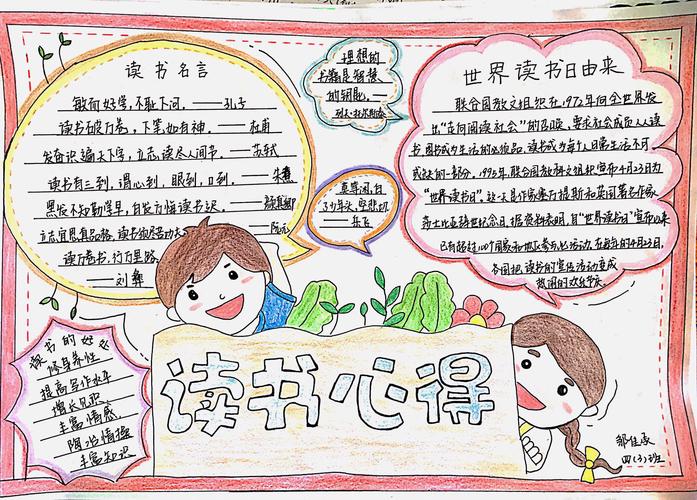 读书名言
敏而好学,不耻下问。——孔子
读书破万卷,下笔如有神。——杜甫
发奋识遍天下字,立志读尽人间书。——苏轼
读书有三到,谓心到,眼到,口到。——朱熹
黑发不知勤学早,白发方悔读书迟。——颜真卿
立志宜思真品格,读书须尽苦功夫。——阮元
读万卷书,行万里路。
——刘彝
理想的
书籍是智慧
的钥匙。
——列夫·托尔斯泰
莫等闲,白
了少年头,空悲切。
——岳飞
世界读书日由来
联合国教文组织在1972年向全世界发
出“走向阅读社会”的召唤,要求社会成员人人读
书,图书成为生活的必须品,读书成为每个人日常生活不可
或缺的一部分。1995年,联合国教科文组织宣布4月23日为
“世界读书日”,这
据资料表明,自“世界读书日”宣布以来
已有超过100个国家和地区参与此活动。在每年的4月23日,
各国把读书的宣传活动变成
热闹的欢乐节庆
读书的好处
修身养性
提高写作水平
增长见识
丰富情感
陶冶情操
丰富知识
读书心得
四(3)班